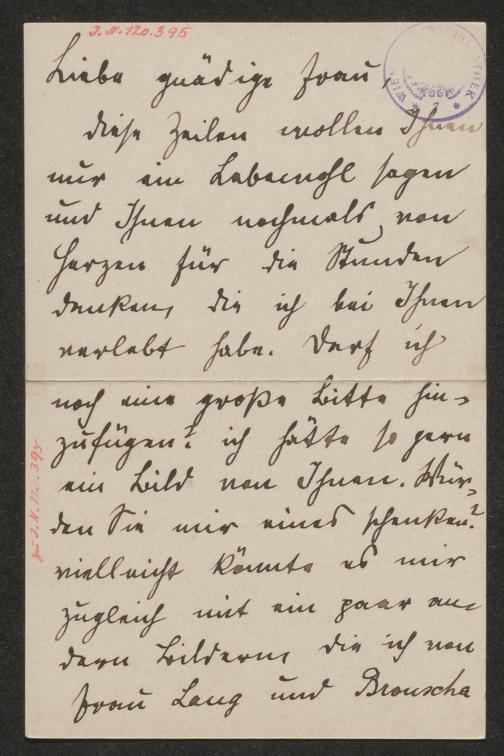 J. N. 120.395
Liebe gnädige Frau,
diese Zeilen wollen Ihnen
nur ein Lebewohl sagen
und Ihnen nochmals von
Herzen für die Stunden
danken, die ich bei Ihnen
verlebt habe. Darf ich
noch eine große Bitte hin-
zufügen? ich hätte so gern
ein Bild von Ihnen. Wür-
den Sie mir eines schenken?
vielleicht könnte es mir
zugleich mit ein paar an-
dern Bildern, die ich von
Frau Lang und Brouscha
zu J. N. 120.395
WIEN